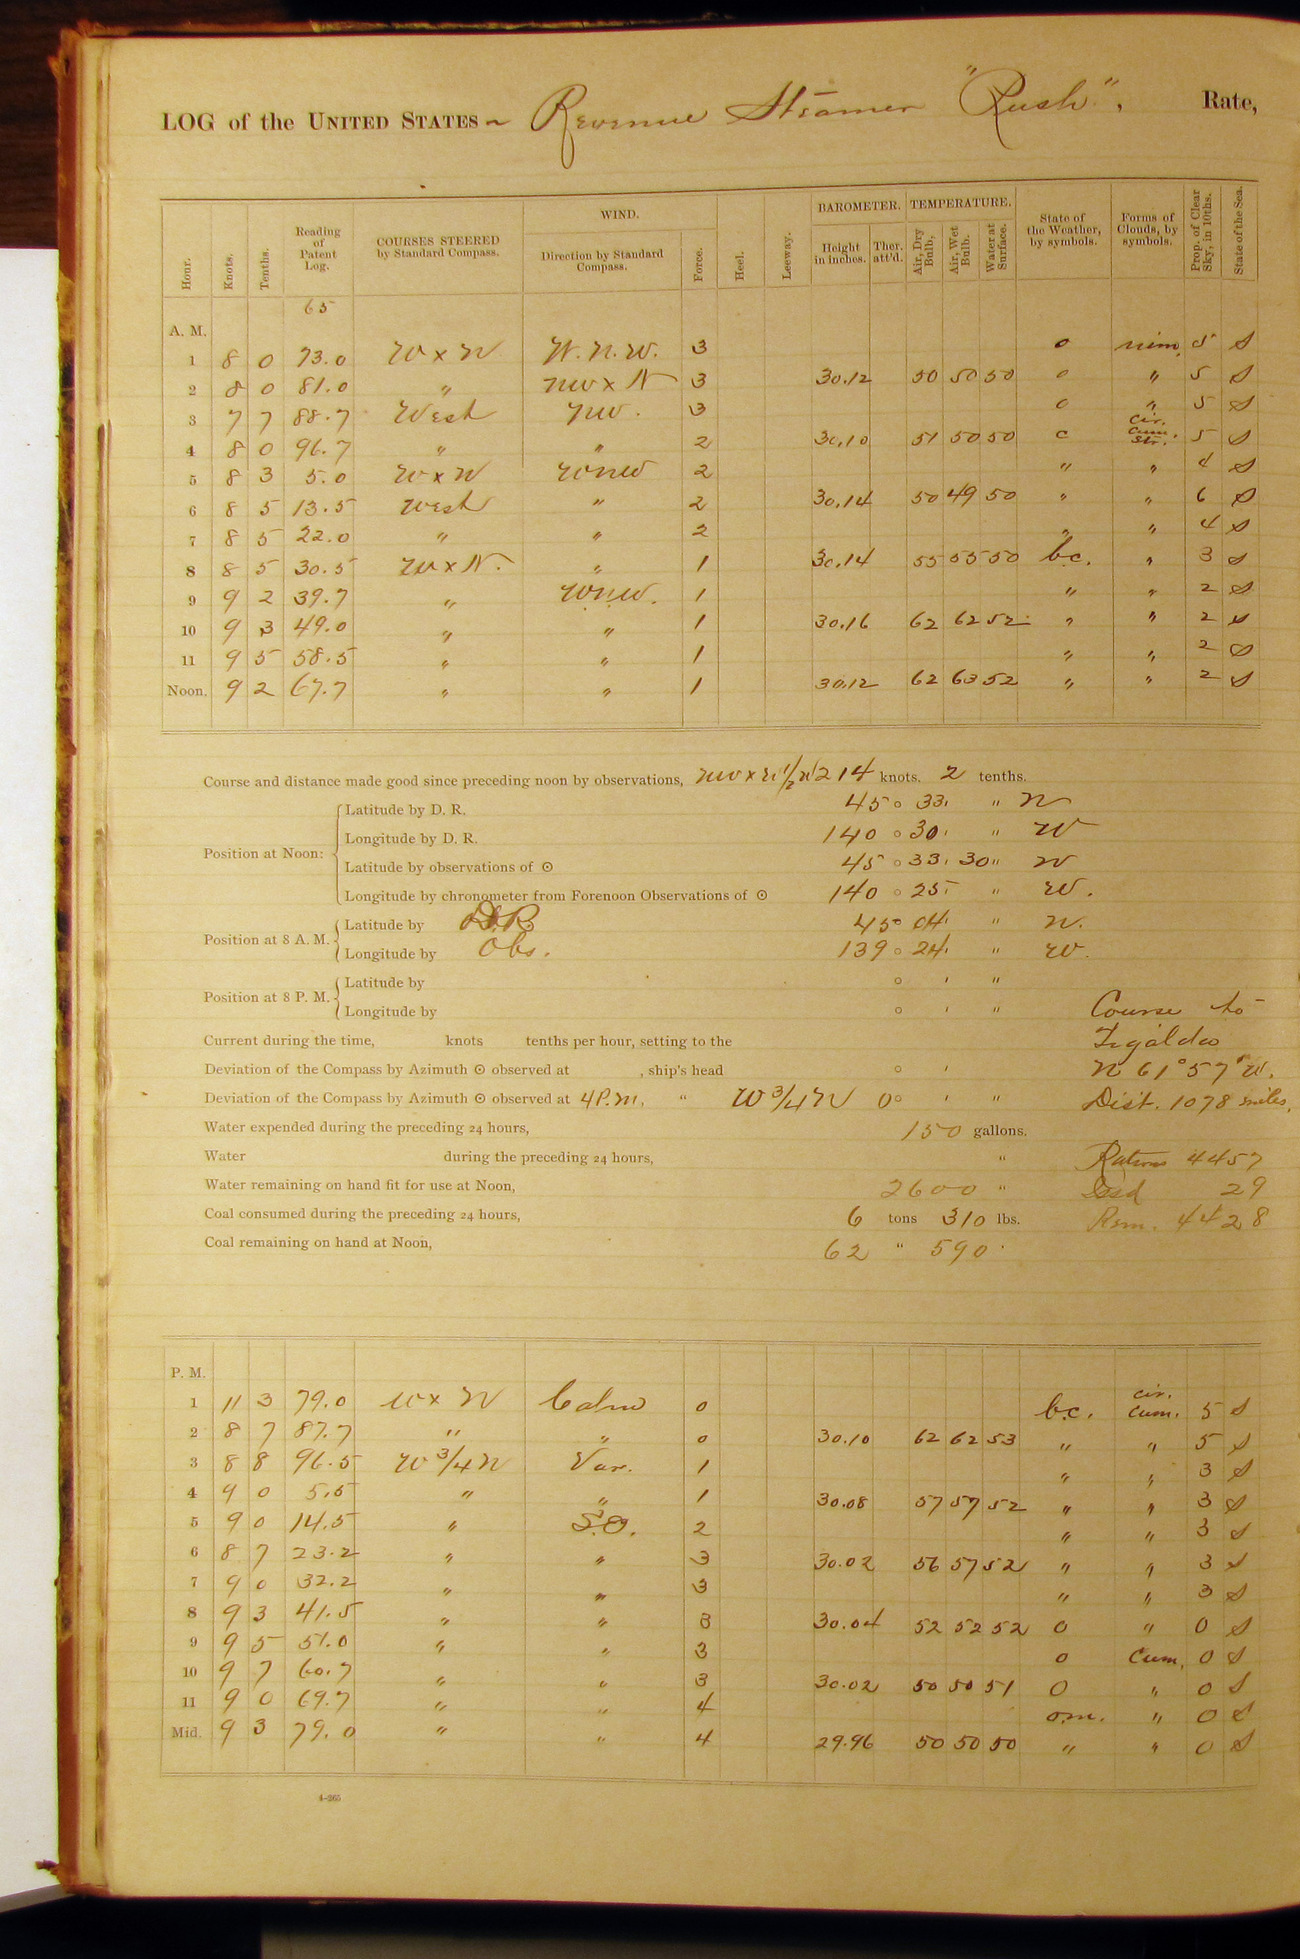 LOG of the UNITED STATES ~ Revenue Steamer "Rush", Rate,
Hour. Knots. Tenths. Reading of Patent Log. COURSES STEERED by Standard Compass. WIND. Direction by Standard Compass. Force. Heel. Leeway. BAROMETER. Height in inches. Ther. att'd. TEMPERATURE. Air, Dry Bulb. Air, Wet Bulb. Water at Surface. State of the Weather, by symbols. Forms of Clouds, by symbols. Prop. of Clear Sky, in 10ths. State of the Sea.
65
A. M.
1 8 0 73.0 W x N W.N.W. 3 o nim. 5 S
2 8 0 81.0 " NW x N 3 30.12 50 50 50 o " 5 S
3 7 7 88.7 West NW. 3 o " 5 S
4 8 0 96.7 " " 2 30.10 51 50 50 c Cir. Cum. Str. 5 S
5 8 3 5.0 W x N WNW 2 " " 4 S
6 8 5 13.5 West " 2 30.14 50 49 50 " " 6 S
7 8 5 22.0 " " 2 " " 4 S
8 8 5 30.5 W x N. " 1 30.14 55 55 50 b.c. " 3 S
9 9 2 39.7 " WNW. 1 " " 2 S
10 9 3 49.0 " " 1 30.16 62 62 52 " " 2 S
11 9 5 58.5 " " 1 " " 2 S
Noon. 9 2 67.7 " " 1 30.12 62 63 52 " " 2 S
Course and distance made good since preceding noon by observations, NW x W 1/2 W 214 knots. 2 tenths.
Position at Noon:
Latitude by D. R. 45 ° 33 ' " N
Longitude by D. R. 140 ° 30 ' " W
Latitude by observations of ☉ 45 ° 33 ' 30 " N
Longitude by chronometer from Forenoon Observations of ☉ 140 ° 25 ' " W.
Position at 8 A. M.
Latitude by D.R. 45 ° 04 ' " N.
Longitude by Obs. 139 ° 24 ' " W.
Position at 8 P. M.
Latitude by ° ' "
Longitude by ° ' " Course to
Current during the time, knots tenths per hour, setting to the
Deviation of the Compass by Azimuth ☉ observed at , ship's head ° ' N 61° 57' W.
Deviation of the Compass by Azimuth ☉ observed at 4 P.M., " W 3/4 N 0 ° ' " Dist. 1078 miles.
Water expended during the preceding 24 hours, 150 gallons.
Water during the preceding 24 hours, " Rations 4457
Water remaining on hand fit for use at Noon, 2600 " 29
Coal consumed during the preceding 24 hours, 6 tons 310 lbs. Rem. 4428
Coal remaining on hand at Noon, 62 " 590
P. M.
1 11 3 79.0 W x N Calm 0 b.c. cir. cum. 5 S
2 8 7 87.7 " " 0 30.10 62 62 53 " " 5 S
3 8 8 96.5 W 3/4 N Var. 1 " " 3 S
4 9 0 5.5 " " 1 30.08 57 57 52 " " 3 S
5 9 0 14.5 " 2 " " 3 S
6 8 7 23.2 " " 3 30.02 56 57 52 " " 3 S
7 9 0 32.2 " " 3 " " 3 S
8 9 3 41.5 " " 3 30.04 52 52 52 o " 0 S
9 9 5 51.0 " " 3 o Cum. 0 S
10 9 7 60.7 " " 3 30.02 50 50 51 o " 0 S
11 9 0 69.7 " " 4 o.m. " 0 S
Mid. 9 3 79.0 " " 4 29.96 50 50 50 " " 0 S
4–265